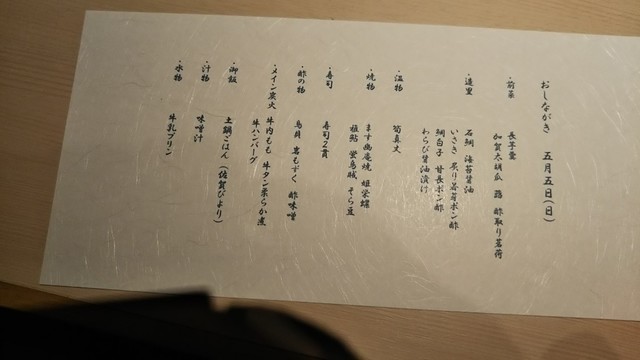 おしながき 五月五日(日)
・前菜 長芋羹
加賀太胡瓜 酢取り茗荷
・造里 石鯛 海苔醤油
いさき 炙り若芽ポン酢
鯛白子 甘長ポン酢
わらび醤油漬け
・温物 筍真丈
・焼物 ます幽庵焼 姫栄螺
稚鮎 蛍烏賊 そら豆
・寿司 寿司2貫
・酢の物 鳥貝 岩もずく 酢味噌
・メイン炭火 牛内もも 牛タン柔らか煮
牛ハンバーグ
・御飯 土鍋ごはん(佐賀びより)
・汁物 味噌汁
・水物 牛乳プリン